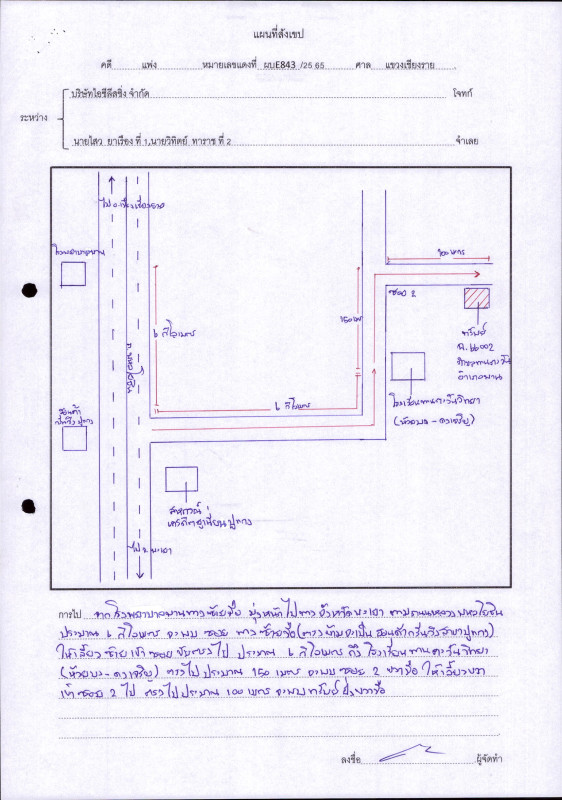 แผนที่สังเขป
คดี แพ่ง หมายเลขแดงที่ ผบE843 /25 65 ศาล แขวงเชียงราย
บริษัทไอซีลีสซิ่ง จำกัด โจทก์
ระหว่าง
นายไสว ยาเรือง ที่ 1,นายวิทิตย์ ทาราช ที่ 2 จำเลย
โรงพยาบาลพาน
6 กิโลเมตร
150 เมตร
100 เมตร
ซอย 2
ทรัพย์
ฉ. 66002
อำเภอพาน
6 กิโลเมตร
(ห้วยบง - ดงเจริญ)
สหกรณ์
เครดิตยูเนี่ยนปูแกง
ไป จ.พะเยา
การไป จากโรงพยาบาลพานทางซ้ายมือ มุ่งหน้าไปทางจังหวัดพะเยา ตามถนนหลวงพหลโยธิน
ประมาณ 6 กิโลเมตร จะพบ ซอย ทางซ้ายมือ (ตรงข้ามจะเป็น
ให้เลี้ยวซ้ายเข้าซอย ขับตรงไป ประมาณ 6 กิโลเมตร ถึง โรงเรียนพานตะวันวิทยา
(ห้วยบง - ดงเจริญ) ตรงไป ประมาณ 150 เมตร จะพบ ซอย 2 ขวามือ ให้เลี้ยวขวา
เข้าซอย 2 ไป ตรงไป ประมาณ 100 เมตร จะพบทรัพย์ฝั่งขวามือ
ลงชื่อ ผู้จัดทำ